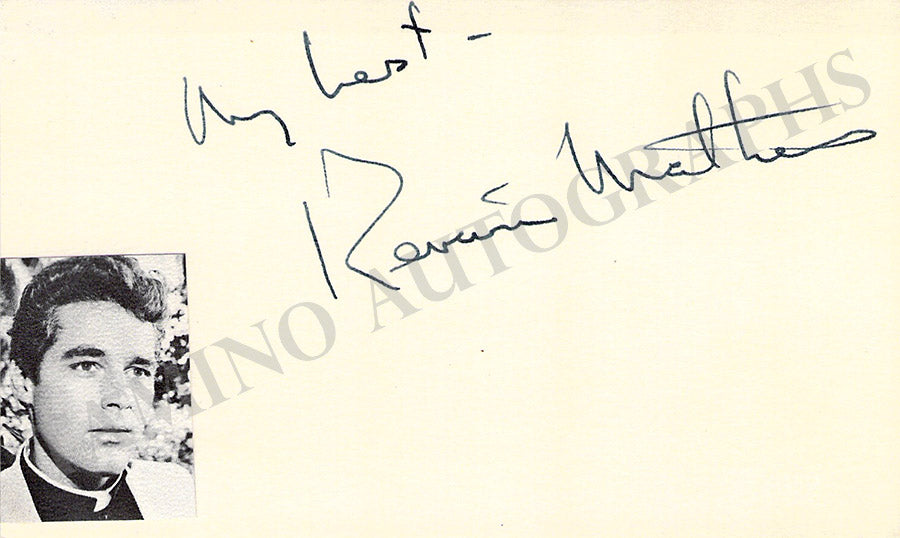 My best -
Kerwin Mathews
TAMINO AUTOGRAPHS